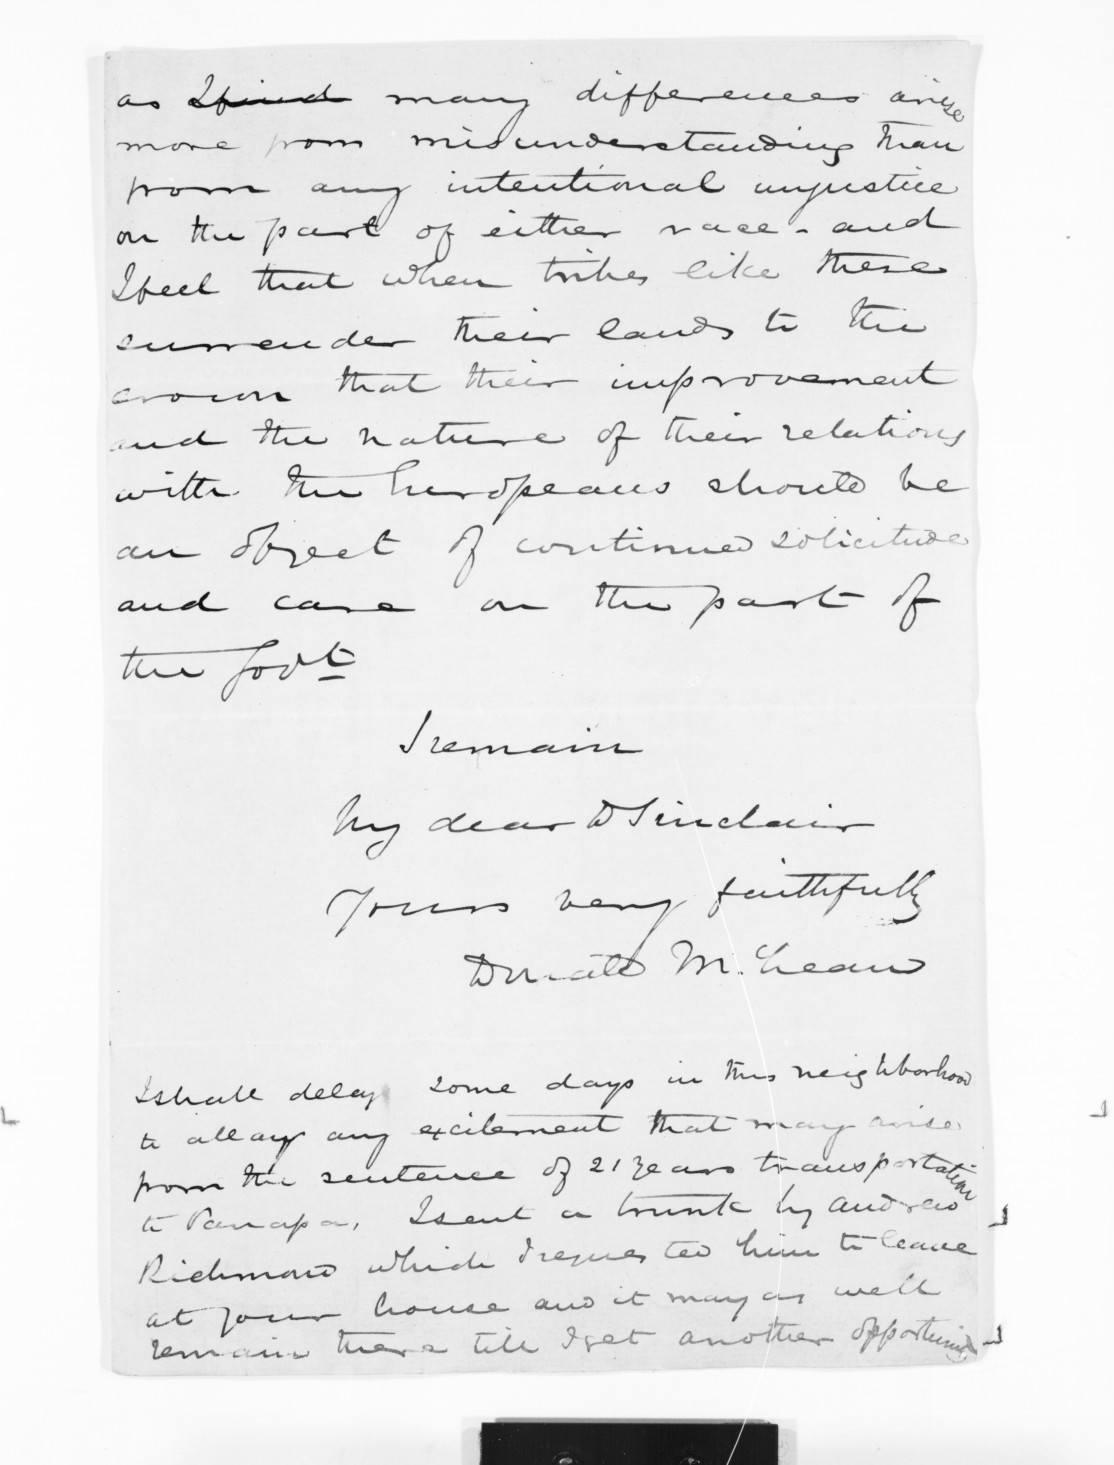 as I find many differences arise
more from misunderstanding than
from any intentional injustice
on the part of either race - and
I feel that when tribes like these
surrender their lands to the
crown that their improvement
and the nature of their relations
with the Europeans should be
an object of continued solicitude
and care on the part of
the Govt
I remain
My dear Dr Sinclair
Yours very faithfully
Donald McLean
I shall delay some days in this neighborhood
to allay any excitement that may arise
from the sentence of 21 years transportation
to Panapa, I sent a trunk by Andrew
Richmond which I requested him to leave
at your house and it may as well
remain there till I get another opportunity